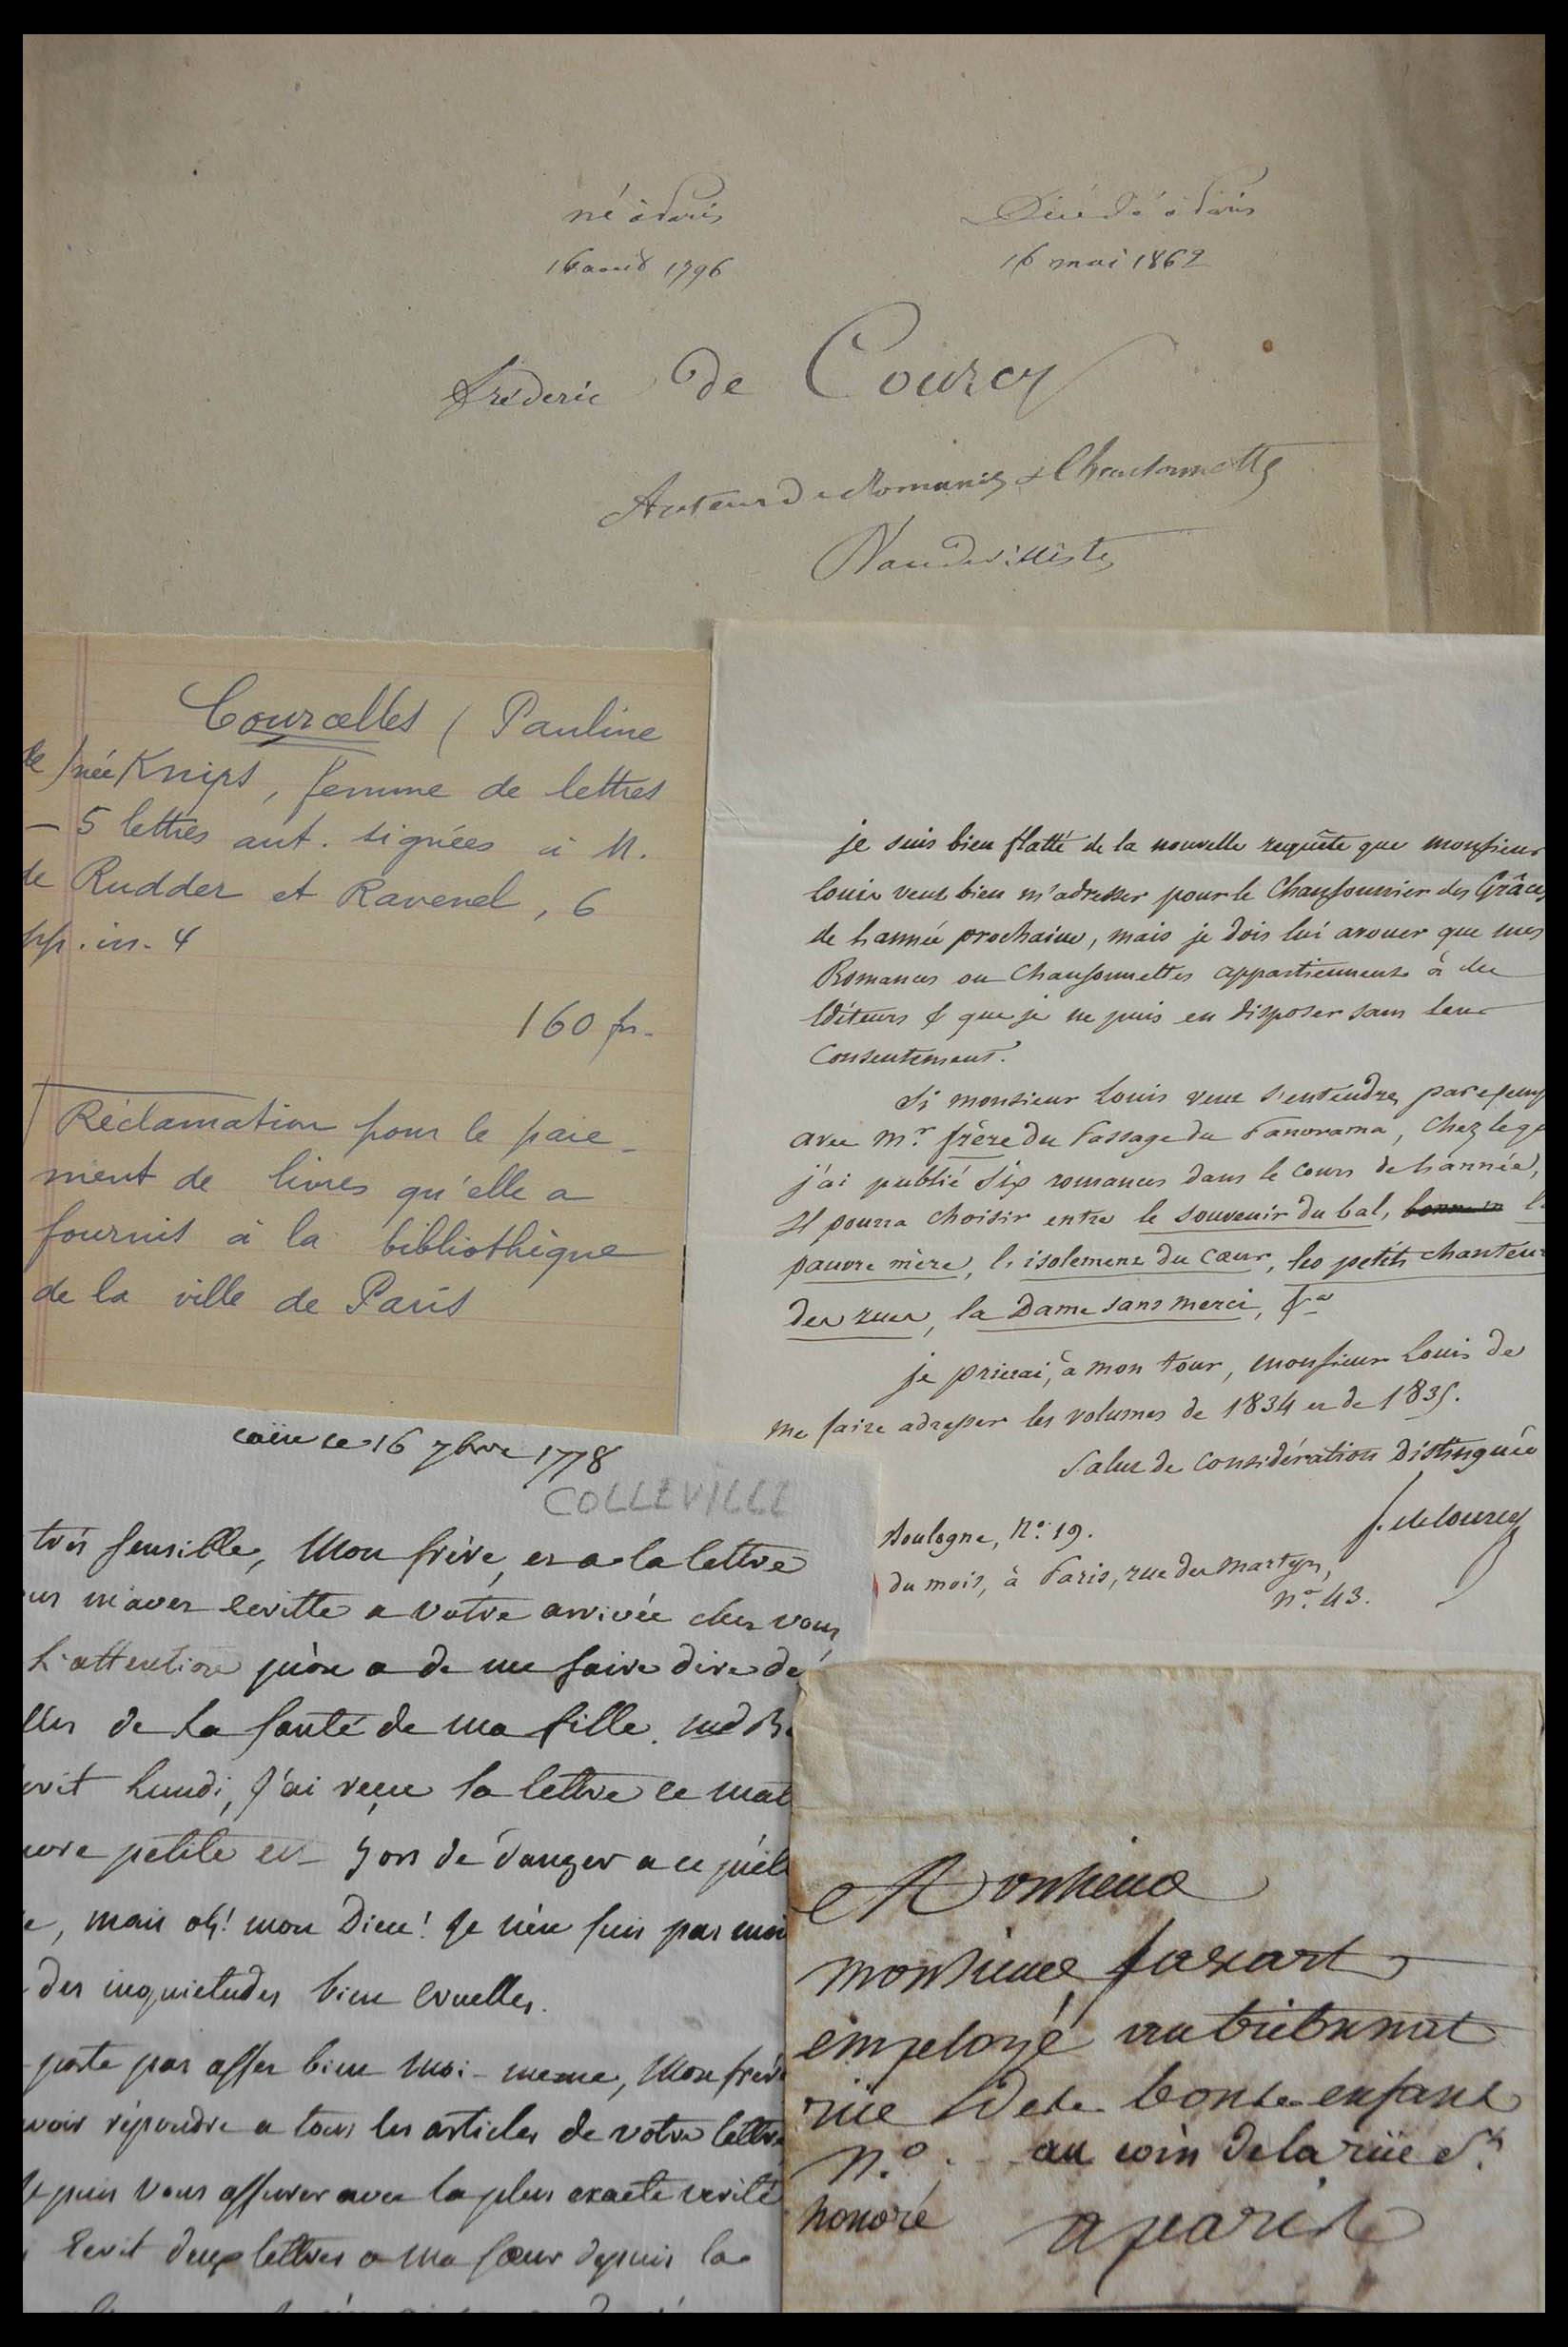 né à Paris
16 août 1796
Décédé à Paris
16 mai 1862
Fréderic de Courcy
Auteur de Romances & Chansonnettes
Vaudevilliste
Courcelles ( Pauline
de ) née Knips, femme de lettres
— 5 lettres aut. signées à M.
de Rudder et Ravenel, 6
pp. in-4
160 fr.
Réclamation pour le paie-
ment de livres qu'elle a
fournis à la bibliothèque
de la ville de Paris
je suis bien flatté de la nouvelle requête que monsieur
Louis veut bien m'adresser pour le Chansonnier des Grâces
de l'année prochaine, mais je dois lui avouer que mes
Romances ou Chansonnettes appartiennent à des
Editeurs & que je ne puis en disposer sans leur
Consentement.
Si monsieur Louis veut s'entendre, par exemp
avec Mr. frère du Passage du Panorama, chez le q
j'ai publié six romances dans le cours de l'année,
Il pourra choisir entre le souvenir du bal, l
pauvre mère, l'isolement du cœur, les petits chanteur
des rues, la Dame sans merci, &a
je prierai, à mon tour, monsieur Louis de
me faire adresser les volumes de 1834 et de 1835.
Salut de Considération distinguée
f. de Courcy
Boulogne, No. 19.
du mois, à Paris, rue des Martyrs,
No. 43.
caën ce 16 7bre 1778
COLLEVILLE
très sensible, Mon frère, et a la lettre
m'aves ecritte a votre arrivée ches vous,
L'attention qu'on a de me faire dire de
lles de la santé de ma fille. md B
crit Lundi, j'ai reçue la lettre ce mat
uvre petite est hors de danger a ce qu'ell
e, mais oh! mon Dieu! je n'en suis pas moi
des inquietudes bien cruelles.
porte pas asses bien moi-meme, Mon frere
voir répondre a tous les articles de votre lettre
je puis vous assurer avec la plus exacte verité
Ecrit deux lettres a ma sœur depuis la
Monsieur
monsieur faxart
employé au tribunat
rüe Dete bonte enfant
N.o au coin de la rüe St
honoré a parite